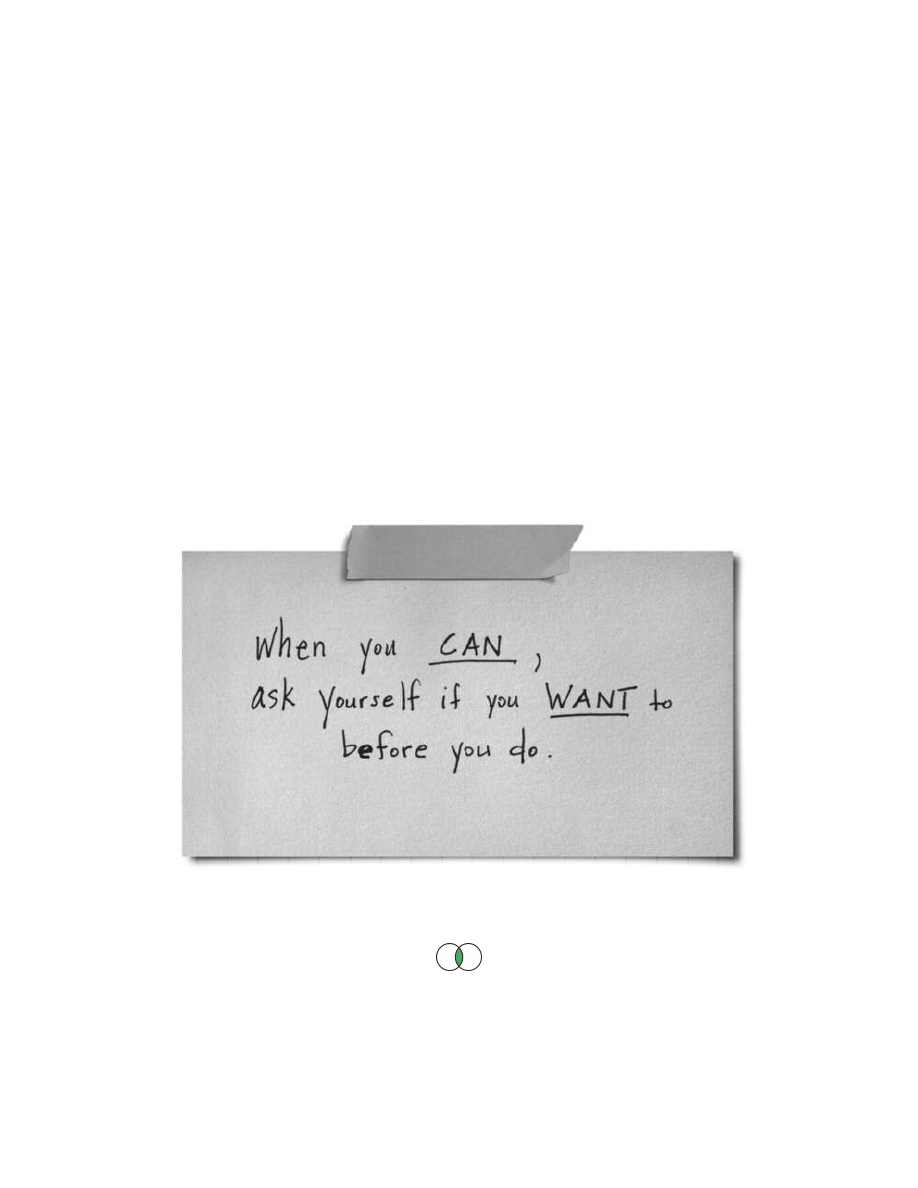 When you CAN,
ask yourself if you WANT to
before you do.